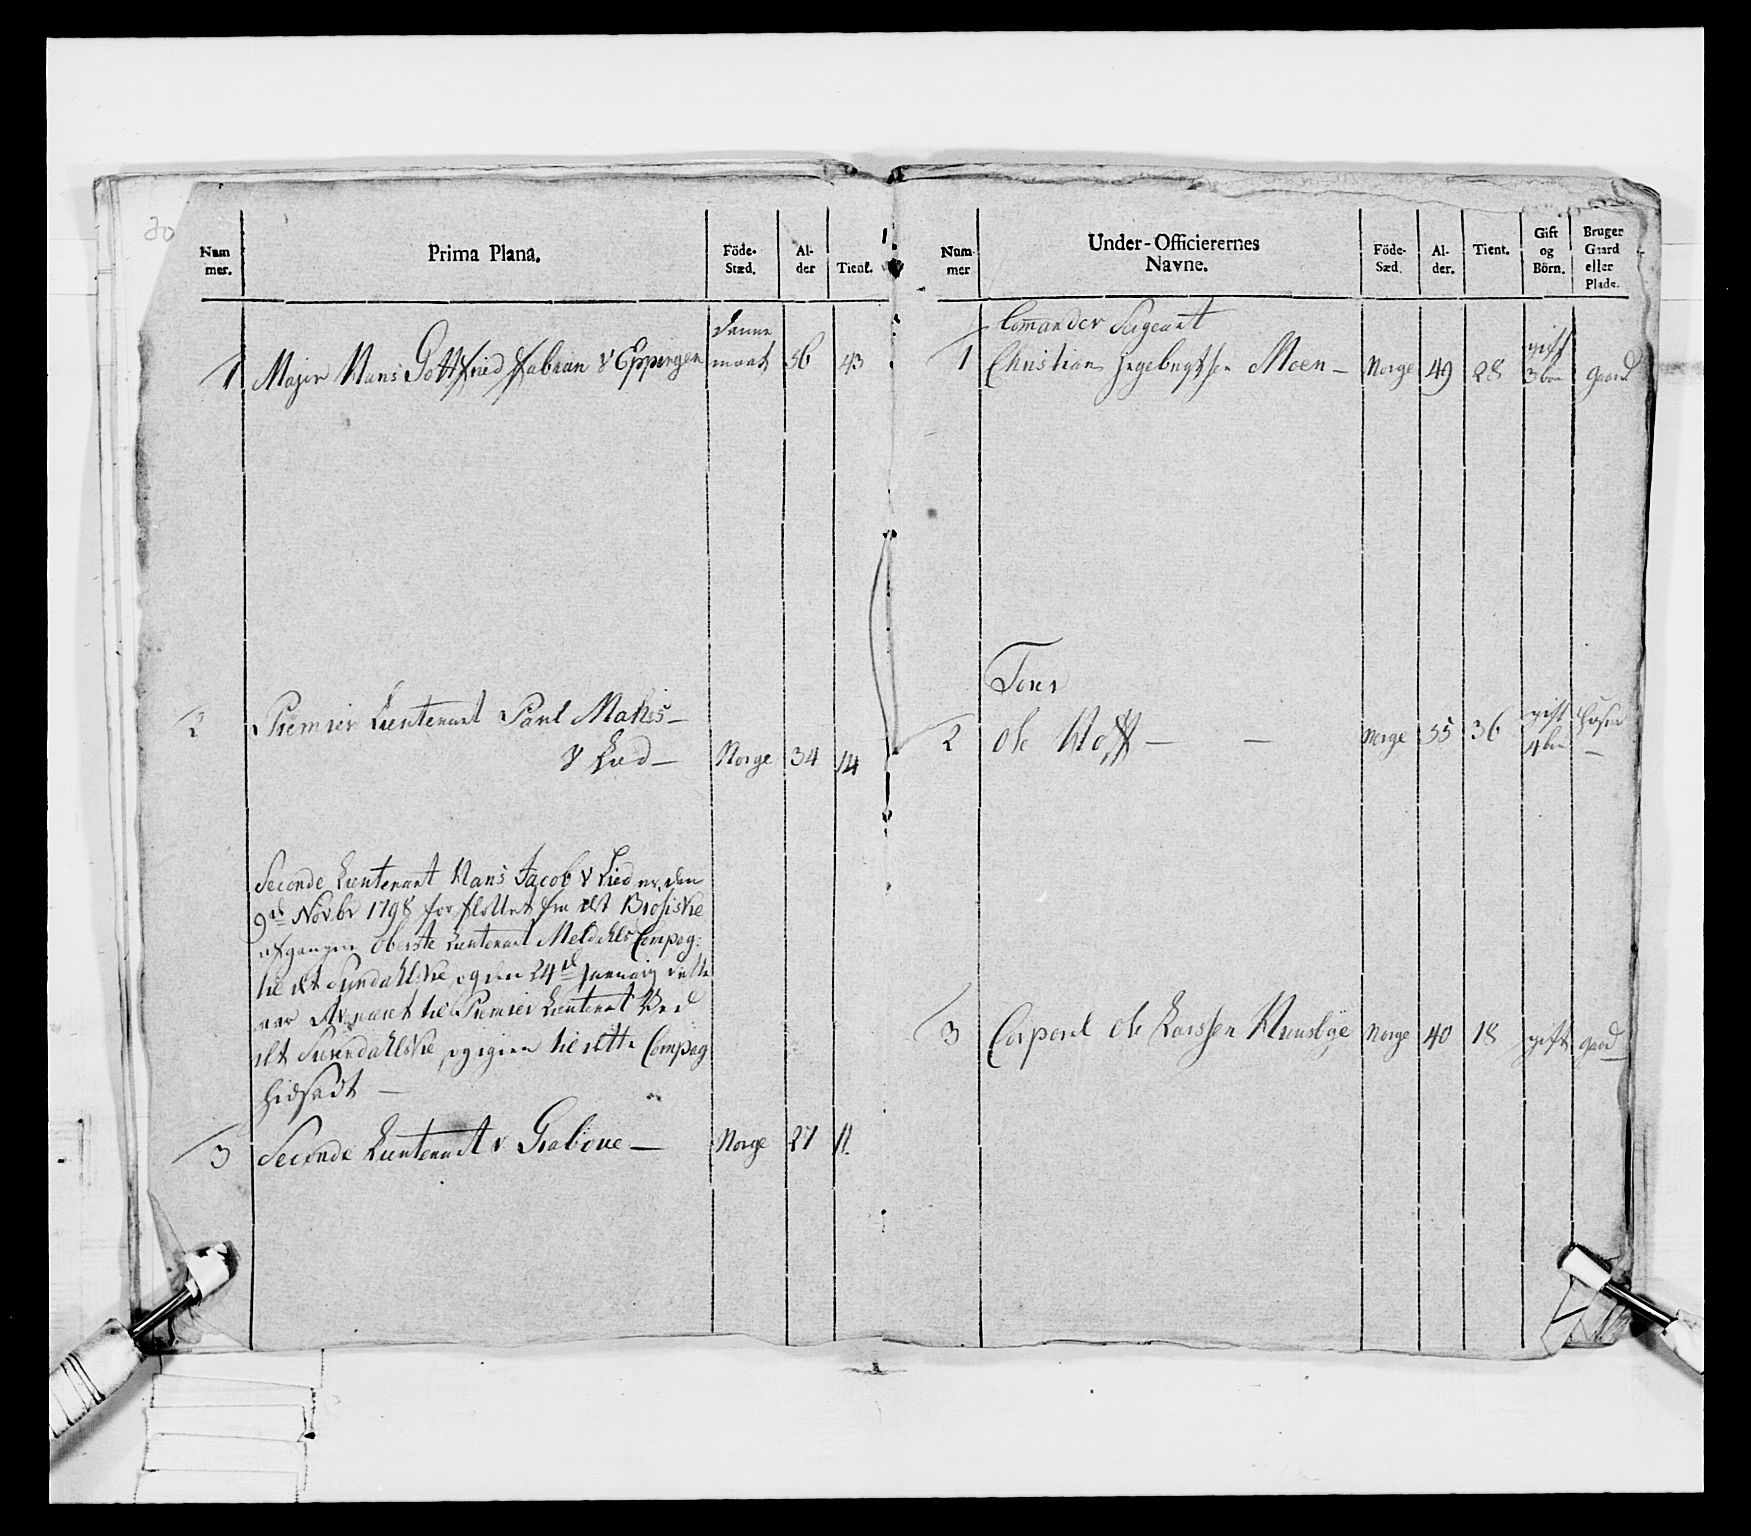 20
Num mer. Prima Plana. Föde-Stæd. Al-der Tient.
1 Major Hans Gottfried Fabian v Eppingen Danne mark 56 43
2 Premier Lieutenant Paul Mathis
v Lied Norge 34 14
Seconde Lieutenant Hans Jacob v Lied er den
9de Novbr 1798 forflyttet fra det
Oberste Lieutenant Meldahls Compag:
til det Sundahlske, og den 24de Januarij dette
aar Avanceret til Premier Lieutenant Ved
det Surendahlske, og igien til dette Compag
hidsadt
3 Seconde Lieutenant v Grabow Norge 27 11
Num mer Under-Officierernes Navne. Föde-Sæd. Al-der. Tient. Gift og Börn. Bruger Gaard eller Plads.
Comander Sergeant
1 Christian Ingebrigtsen Moen Norge 49 28 gift 3 börn gaard
Four
2 Ole Hoff Norge 55 36 gift
3 Corporal Ole Larssen Huusbye Norge 40 18 gift gaard